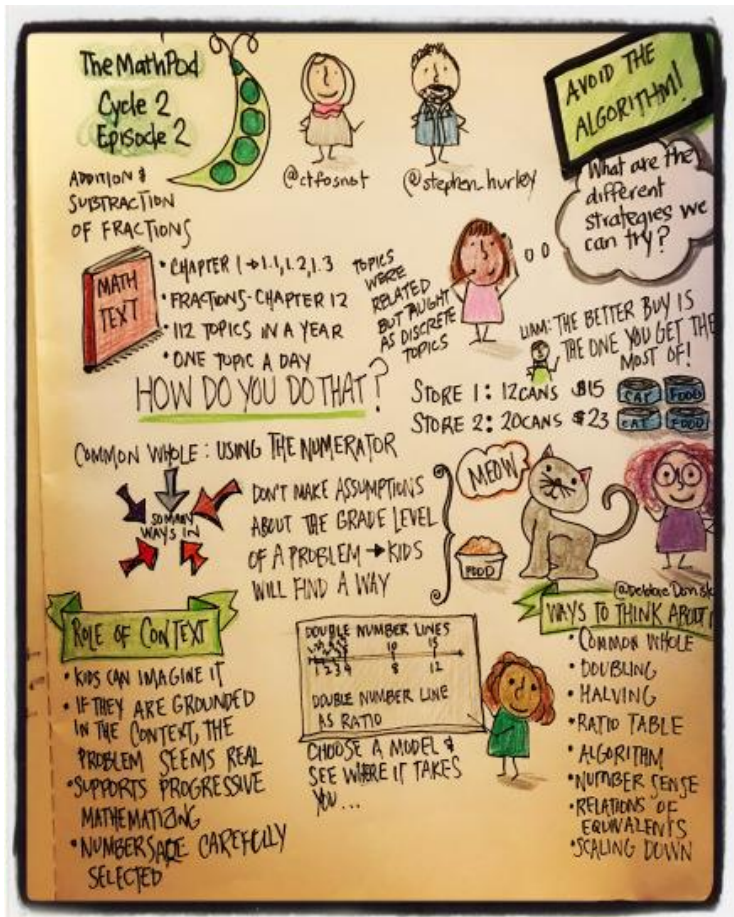 The MathPod
Cycle 2
Episode 2
ADDITION &
SUBTRACTION
OF FRACTIONS
@ctfosnot
@stephen_hurley
AVOID THE
ALGORITHM!
What are the
different
strategies we
can try?
MATH
TEXT
• CHAPTER 1 → 1.1, 1.2, 1.3
• FRACTIONS - CHAPTER 12
• 112 TOPICS IN A YEAR
• ONE TOPIC A DAY
TOPICS
WERE
RELATED
BUT TAUGHT
AS DISCRETE
TOPICS
LIAM: THE BETTER BUY IS
THE ONE YOU GET THE
MOST OF!
HOW DO YOU DO THAT?
STORE 1: 12 CANS $15
CAT FOOD
STORE 2: 20 CANS $23
CAT FOOD
COMMON WHOLE: USING THE NUMERATOR
SO MANY
WAYS IN
DON'T MAKE ASSUMPTIONS
ABOUT THE GRADE LEVEL
OF A PROBLEM → KIDS
WILL FIND A WAY
MEOW
FOOD
ROLE OF CONTEXT
• KIDS CAN IMAGINE IT
• IF THEY ARE GROUNDED
IN THE CONTEXT, THE
PROBLEM SEEMS REAL
• SUPPORTS PROGRESSIVE
MATHEMATIZING
• NUMBERS ARE CAREFULLY
SELECTED
DOUBLE NUMBER LINES
10 15
1 2 3 4 8 12
DOUBLE NUMBER LINE
AS RATIO
CHOOSE A MODEL &
SEE WHERE IT TAKES
YOU...
WAYS TO THINK ABOUT
• COMMON WHOLE
• DOUBLING
• HALVING
• RATIO TABLE
• ALGORITHM
• NUMBER SENSE
• RELATIONS OF
EQUIVALENTS
• SCALING DOWN